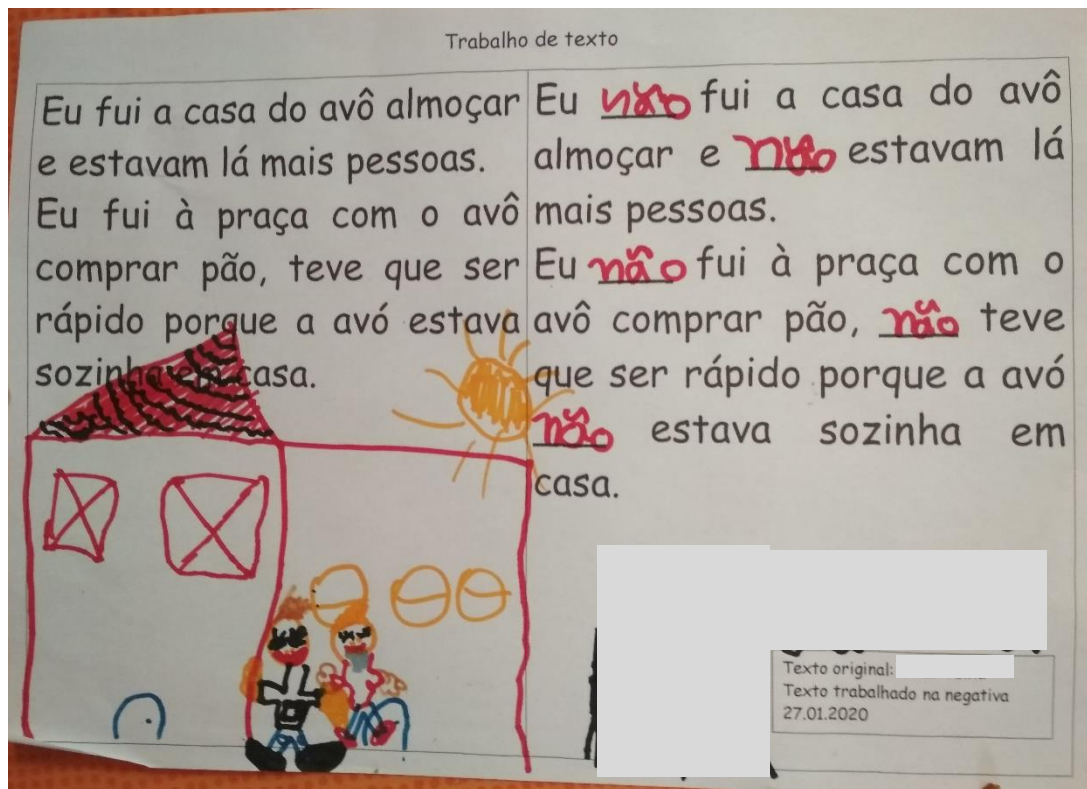 Trabalho de texto
Eu fui a casa do avô almoçar
e estavam lá mais pessoas.
Eu fui à praça com o avô
comprar pão, teve que ser
rápido porque a avó estava
sozinha em casa.
Eu não fui a casa do avô
almoçar e não estavam lá
mais pessoas.
Eu não fui à praça com o
avô comprar pão, não teve
que ser rápido porque a avó
não estava sozinha em
casa.
Texto original:
Texto trabalhado na negativa
27.01.2020